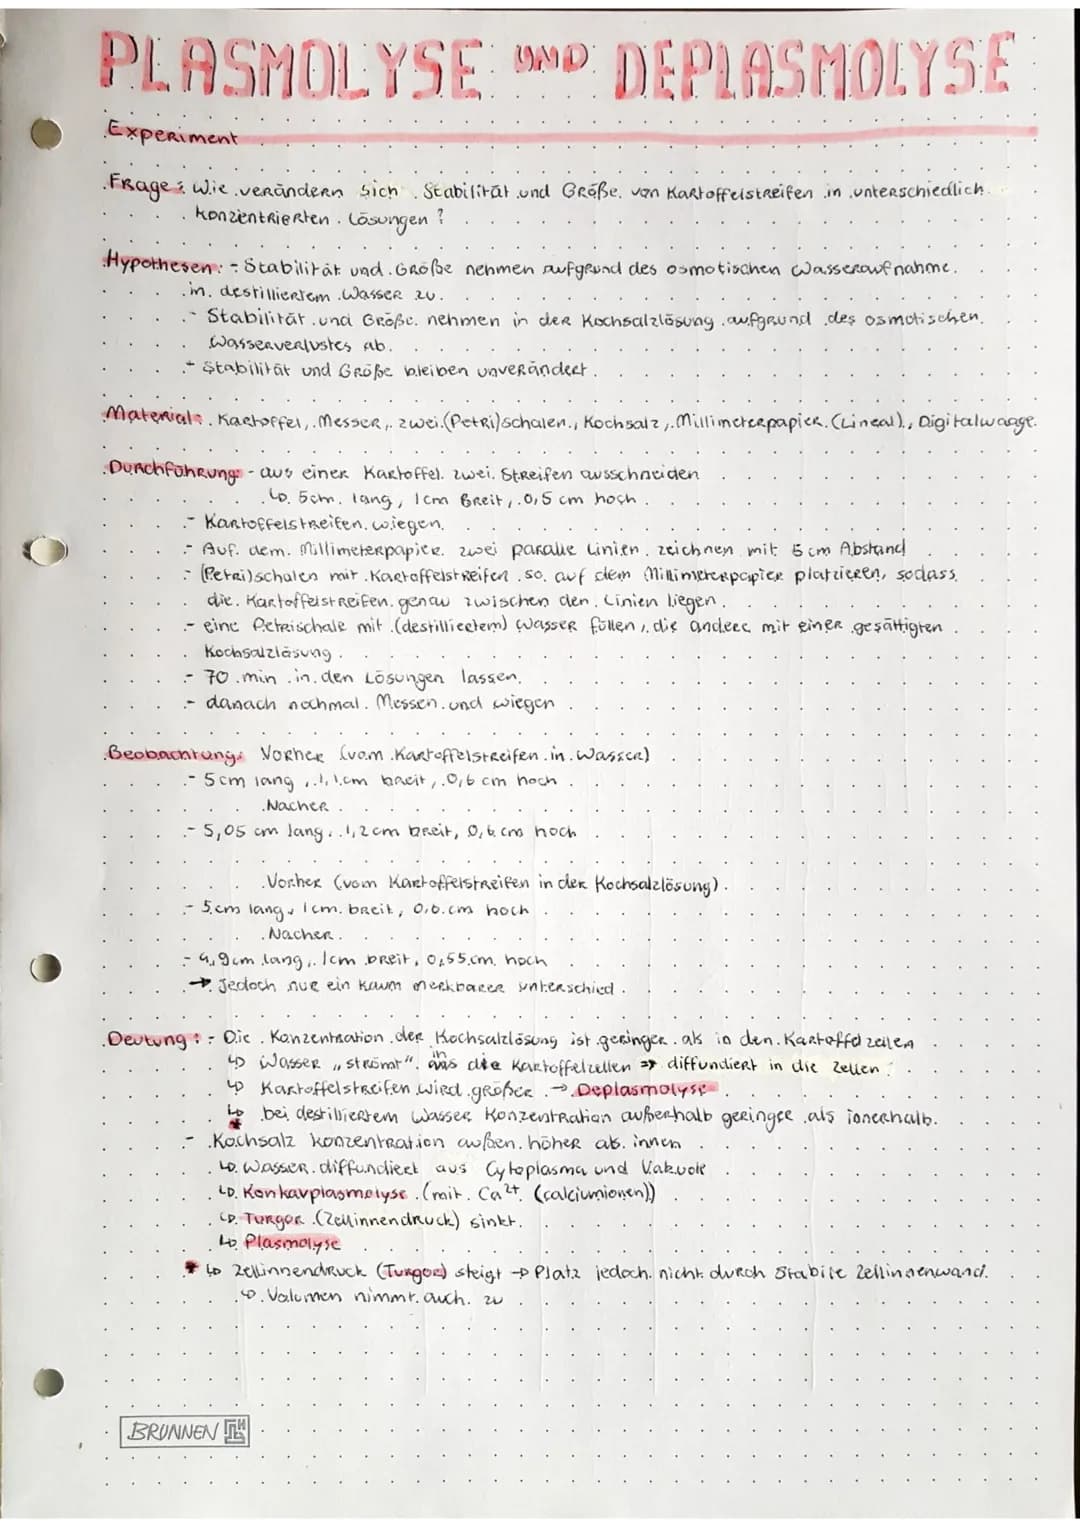 PLASMOLYSE UND DEPLASMOLYSE
Experiment
Frage: Wie verändern sich Stabilität und Größe von Kartoffelstreifen in unterschiedlich
konzentrierten Lösungen?
Hypothesen: - Stabilität und Größe nehmen aufgrund des osmotischen Wasseraufnahme
in destilliertem Wasser zu.
- Stabilität und Größe nehmen in der Kochsalzlösung aufgrund des osmotischen
Wasserverlustes ab.
- Stabilität und Größe bleiben unverändert.
Material: Kartoffel, Messer, zwei (Petri)schalen, Kochsalz, Millimeterpapier (Lineal), Digitalwaage
Durchführung: - aus einer Kartoffel zwei Streifen ausschneiden
↳ 5cm lang, 1cm Breit, 0,5 cm hoch
- Kartoffelstreifen wiegen
- Auf dem Millimeterpapier zwei paralle Linien zeichnen mit 5 cm Abstand
- (Petri)schalen mit Kartoffelstreifen so auf dem Millimeterpapier platzieren, sodass
die Kartoffelstreifen genau zwischen den Linien liegen
- eine Petrischale mit (destilliertem) Wasser füllen, die andere mit einer gesättigten
Kochsalzlösung
- 70 min in den Lösungen lassen
- danach nochmal Messen und wiegen
Beobachtung: Vorher (vom Kartoffelstreifen in Wasser)
- 5cm lang, 1,1cm breit, 0,6 cm hoch
Nacher
- 5,05 cm lang, 1,2cm breit, 0,6 cm hoch
Vorher (vom Kartoffelstreifen in der Kochsalzlösung)
- 5cm lang, 1cm breit, 0,6 cm hoch
Nacher
- 4,9cm lang, 1cm breit, 0,55 cm hoch
→ Jedoch nur ein kaum merkbarer unterschied
Deutung: - Die Konzentration der Kochsalzlösung ist geringer als in den Kartoffelzellen
↳ Wasser „strömt" in die Kartoffelzellen => diffundiert in die Zellen
↳ Kartoffelstreifen wird größer → Deplasmolyse
↳ bei destilliertem Wasser Konzentration außerhalb geringer als innerhalb.
*
- Kochsalz konzentration außen höher als innen
↳ Wasser diffundiert aus Cytoplasma und Vakuole
↳ Konkavplasmolyse (mit Ca²⁺ (calciumionen))
↳ Turgor (Zellinnendruck) sinkt
↳ Plasmolyse
* ↳ Zellinnendruck (Turgor) steigt → Platz jedoch nicht durch Stabile Zellinnenwand.
↳ Volumen nimmt auch zu
BRUNNEN